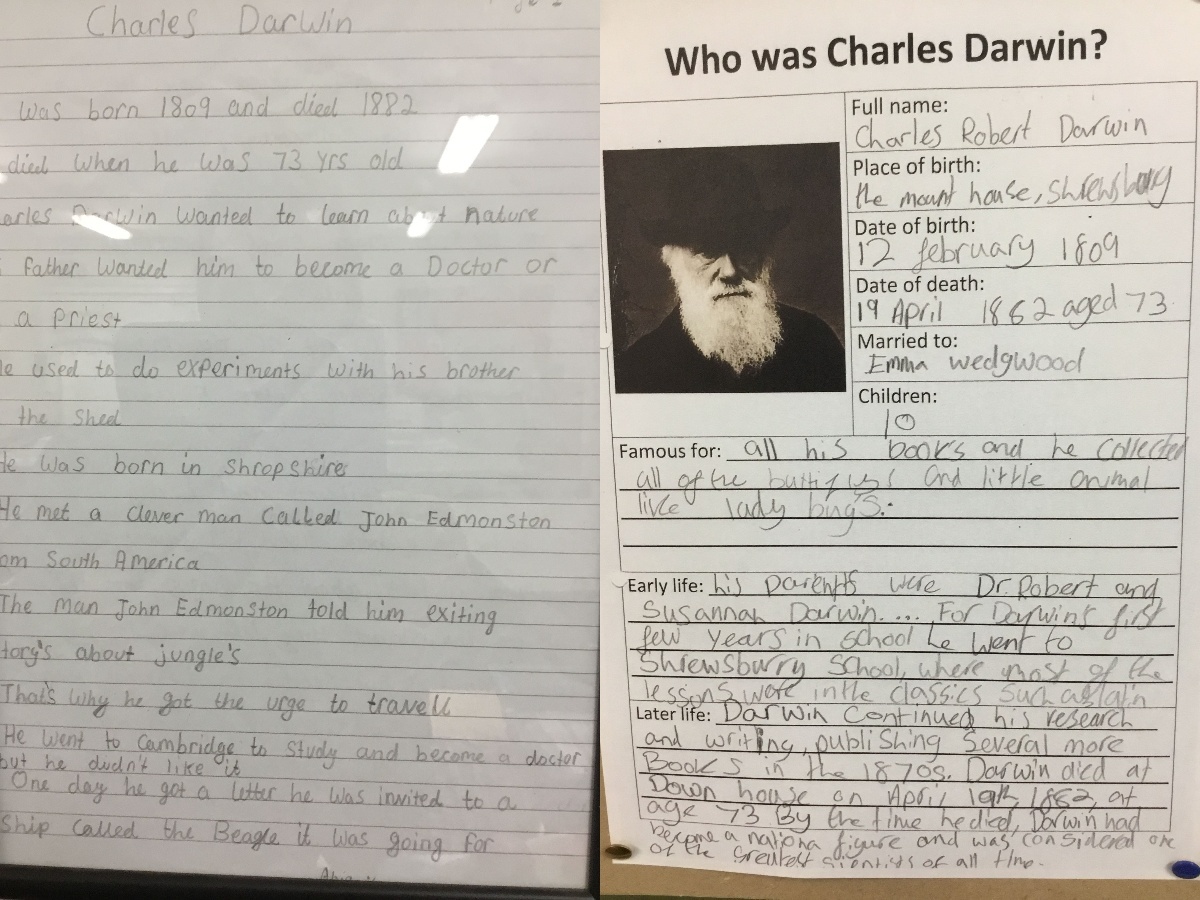 Charles Darwin
Was born 1809 and died 1882
died when he was 73 yrs old
arles Darwin wanted to learn about nature
father wanted him to become a Doctor or
a Priest
le used to do experiments with his brother
the shed
He was born in shropshire
He met a clever man called John Edmonston
om South America
The man John Edmonston told him exiting
tory's about jungle's
That's why he got the urge to travell
He went to Cambridge to study and become a doctor
but he dudn't like it
One day he got a letter he was invited to a
Ship called the Beagle it was going for
Who was Charles Darwin?
Full name:
Charles Robert Darwin
Place of birth:
the mount house, Shrewsbury
Date of birth:
12 february 1809
Date of death:
19 April 1862 aged 73
Married to:
Emma wedgwood
Children:
10
Famous for: all his books and he collected
all of the and little animal
like lady bugs.
Early life: his parents were Dr. Robert and
Susannah Darwin.... For Darwin's first
few years in school he went to
Shrewsburry School, where most of the
lessons were in the classics such as latin
Later life: Darwin continued his research
and writing, publishing several more
Books in the 1870s. Darwin died at
Down house on April 19th, 1882, at
age 73 By the time he died, Darwin had
become a nationa figure and was considered one
of the greatest scientists of all time.